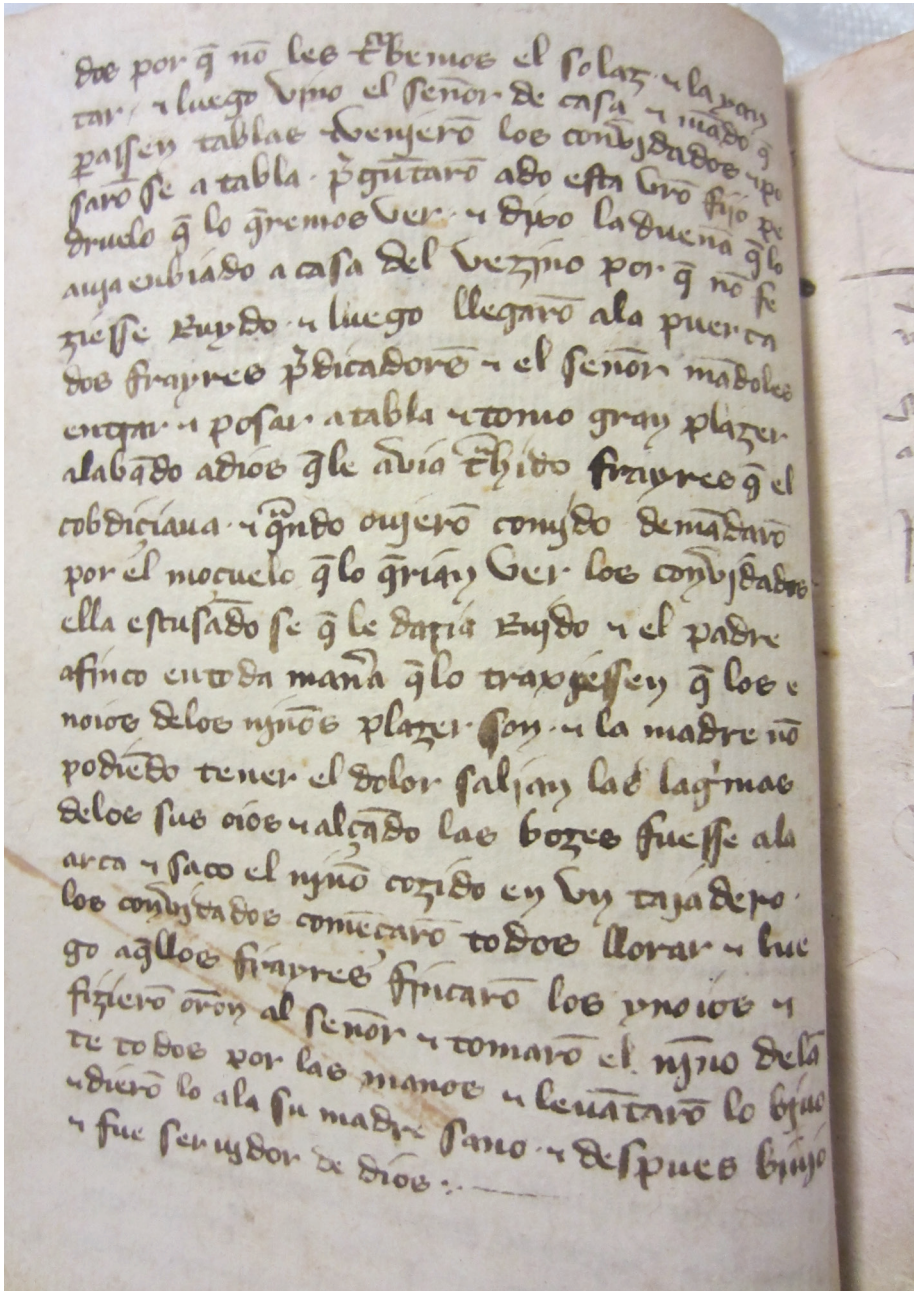 dos por q̄ nō les t̄rbemos el solaz · ⁊ la yan
tar · ⁊ luego vino el señor de casa ⁊ mādo q̄
passen tablas ⁊ venierō los conv̄idados ⁊ po
sarō se a tabla · p̄gūtarō ado esta vr̄o fijo pe
druelo q̄ lo q̄remos ver · ⁊ dixo la dueña q̄ lo
auja enbiado a casa del vezino por q̄ nō fe
ziesse Ruydo · ⁊ luego llegarō ala puerta
dos frayres p̄dicadorēs ⁊ el señor mādoles
entrar ⁊ posar a tabla ⁊ tomo gran plazer
alabādo adios q̄le avia t̄hido frayres q̄ el
cobdiçiaua · ⁊ q̄ndo oujerō comjdo demādarō
por el moçuelo q̄ lo q̄riā̄n ver los conv̄idados
ella escusādo se q̄ le daria Ruido ⁊ el padre
afinco en toda man̄a q̄lo traxiessen q̄ los e
noios delos njños plazer son · ⁊ la madre nō
podiēdo tener el dolor salian las laḡmas
delos sus oios ⁊ alçādo las bozes fuesse ala
arca ⁊ saco el njño cozido en vn taiadero ·
los conv̄idados comēçarō todos llorar ⁊ lue
go aq̄llos frayres fincarō los ynoios ⁊
fizierō orōn al señor ⁊ tomarō el njño delā
te todos por las manos ⁊ leuātarō lo bivo
⁊ dierō lo ala su madre sano · ⁊ despues bivio
⁊ fue seruidor de dios ·